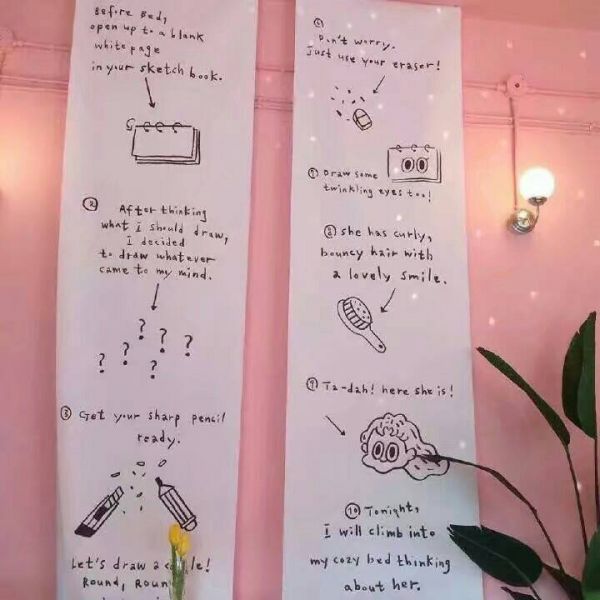 Before Bed,
open up to a blank
white page
in your sketch book.
② After thinking
what I should draw,
I decided
to draw whatever
came to my mind.
? ? ? ? ? ?
③ Get your sharp pencil
ready.
Let's draw a
Round,
Don't worry.
Just use your eraser!
⑦ Draw some
twinkling eyes too!
⑧ she has curly,
bouncy hair with
a lovely smile.
⑨ Ta-dah! here she is!
⑩ Tonight,
I will climb into
my cozy bed thinking
about her.